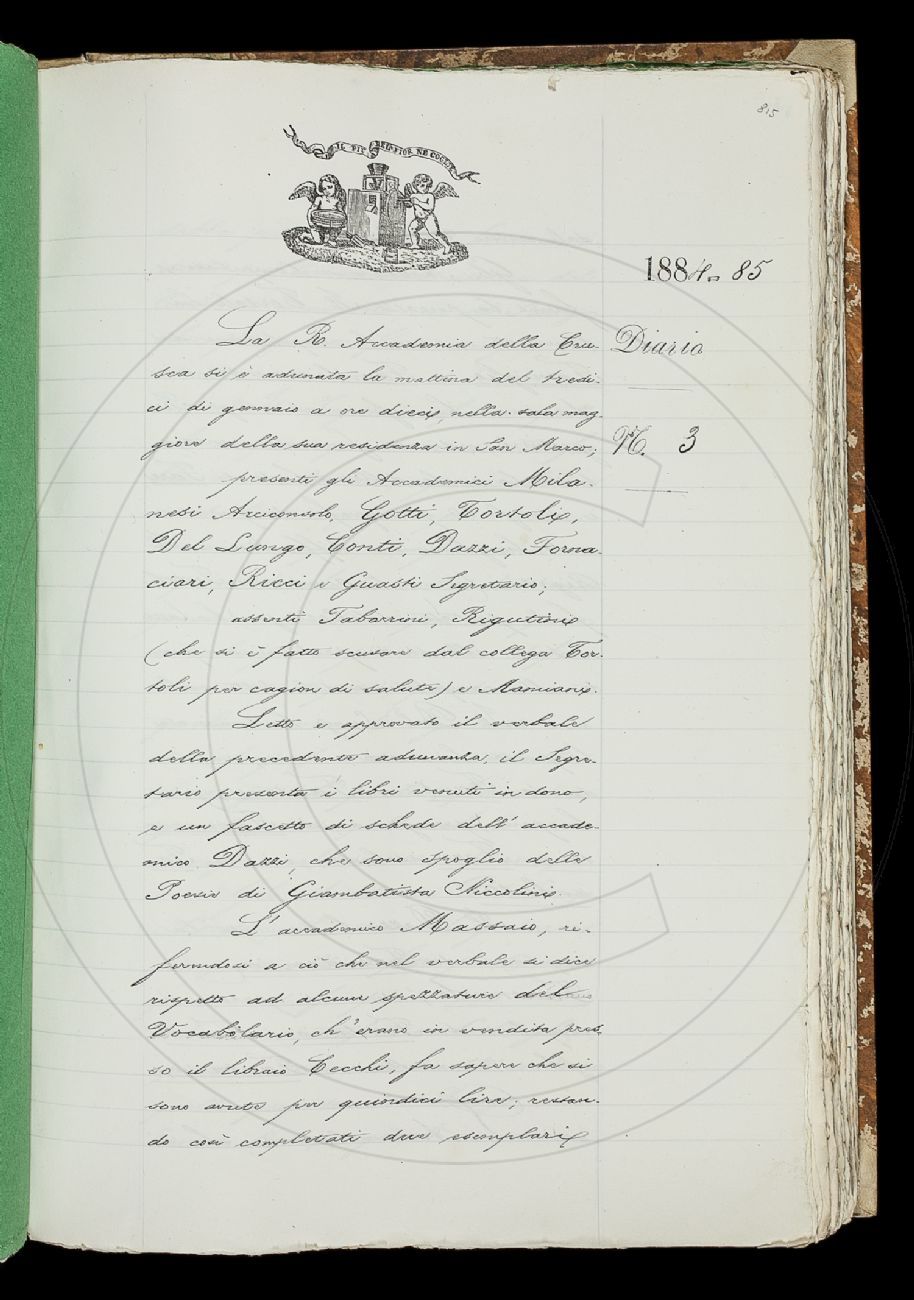 815
IL PIÙ BEL FIOR NE COGLIE
1884-85
La R. Accademia della Cru-
Diario
sca si è adunata la mattina del tredi-
ci di gennaio a ore dieci, nella sala mag-
giore della sua residenza in San Marco;
N. 3
presenti gli Accademici Mila-
nesi Arciconsolo, Gotti, Tortoli,
Del Lungo, Conti, Dazzi, Forna-
ciari, Ricci e Guasti Segretario;
assenti Tabarrini, Rigutini
(che si è fatto scusare dal collega Tor-
toli per cagion di salute) e Mamiani.
Letto e approvato il verbale
della precedente adunanza, il Segre-
tario presenta i libri venuti in dono,
e un fascetto di schede dell' accade-
mico Dazzi, che sono spoglio delle
Poesie di Giambatista Niccolini.
L' accademico Massaio, ri-
ferendosi a ciò che nel verbale si dice
rispetto ad alcune spezzature del
Vocabolario, ch' erano in vendita pres-
so il libraio Cecchi, fa sapere che si
sono avute per quindici lire; restan-
do così completati due esemplari